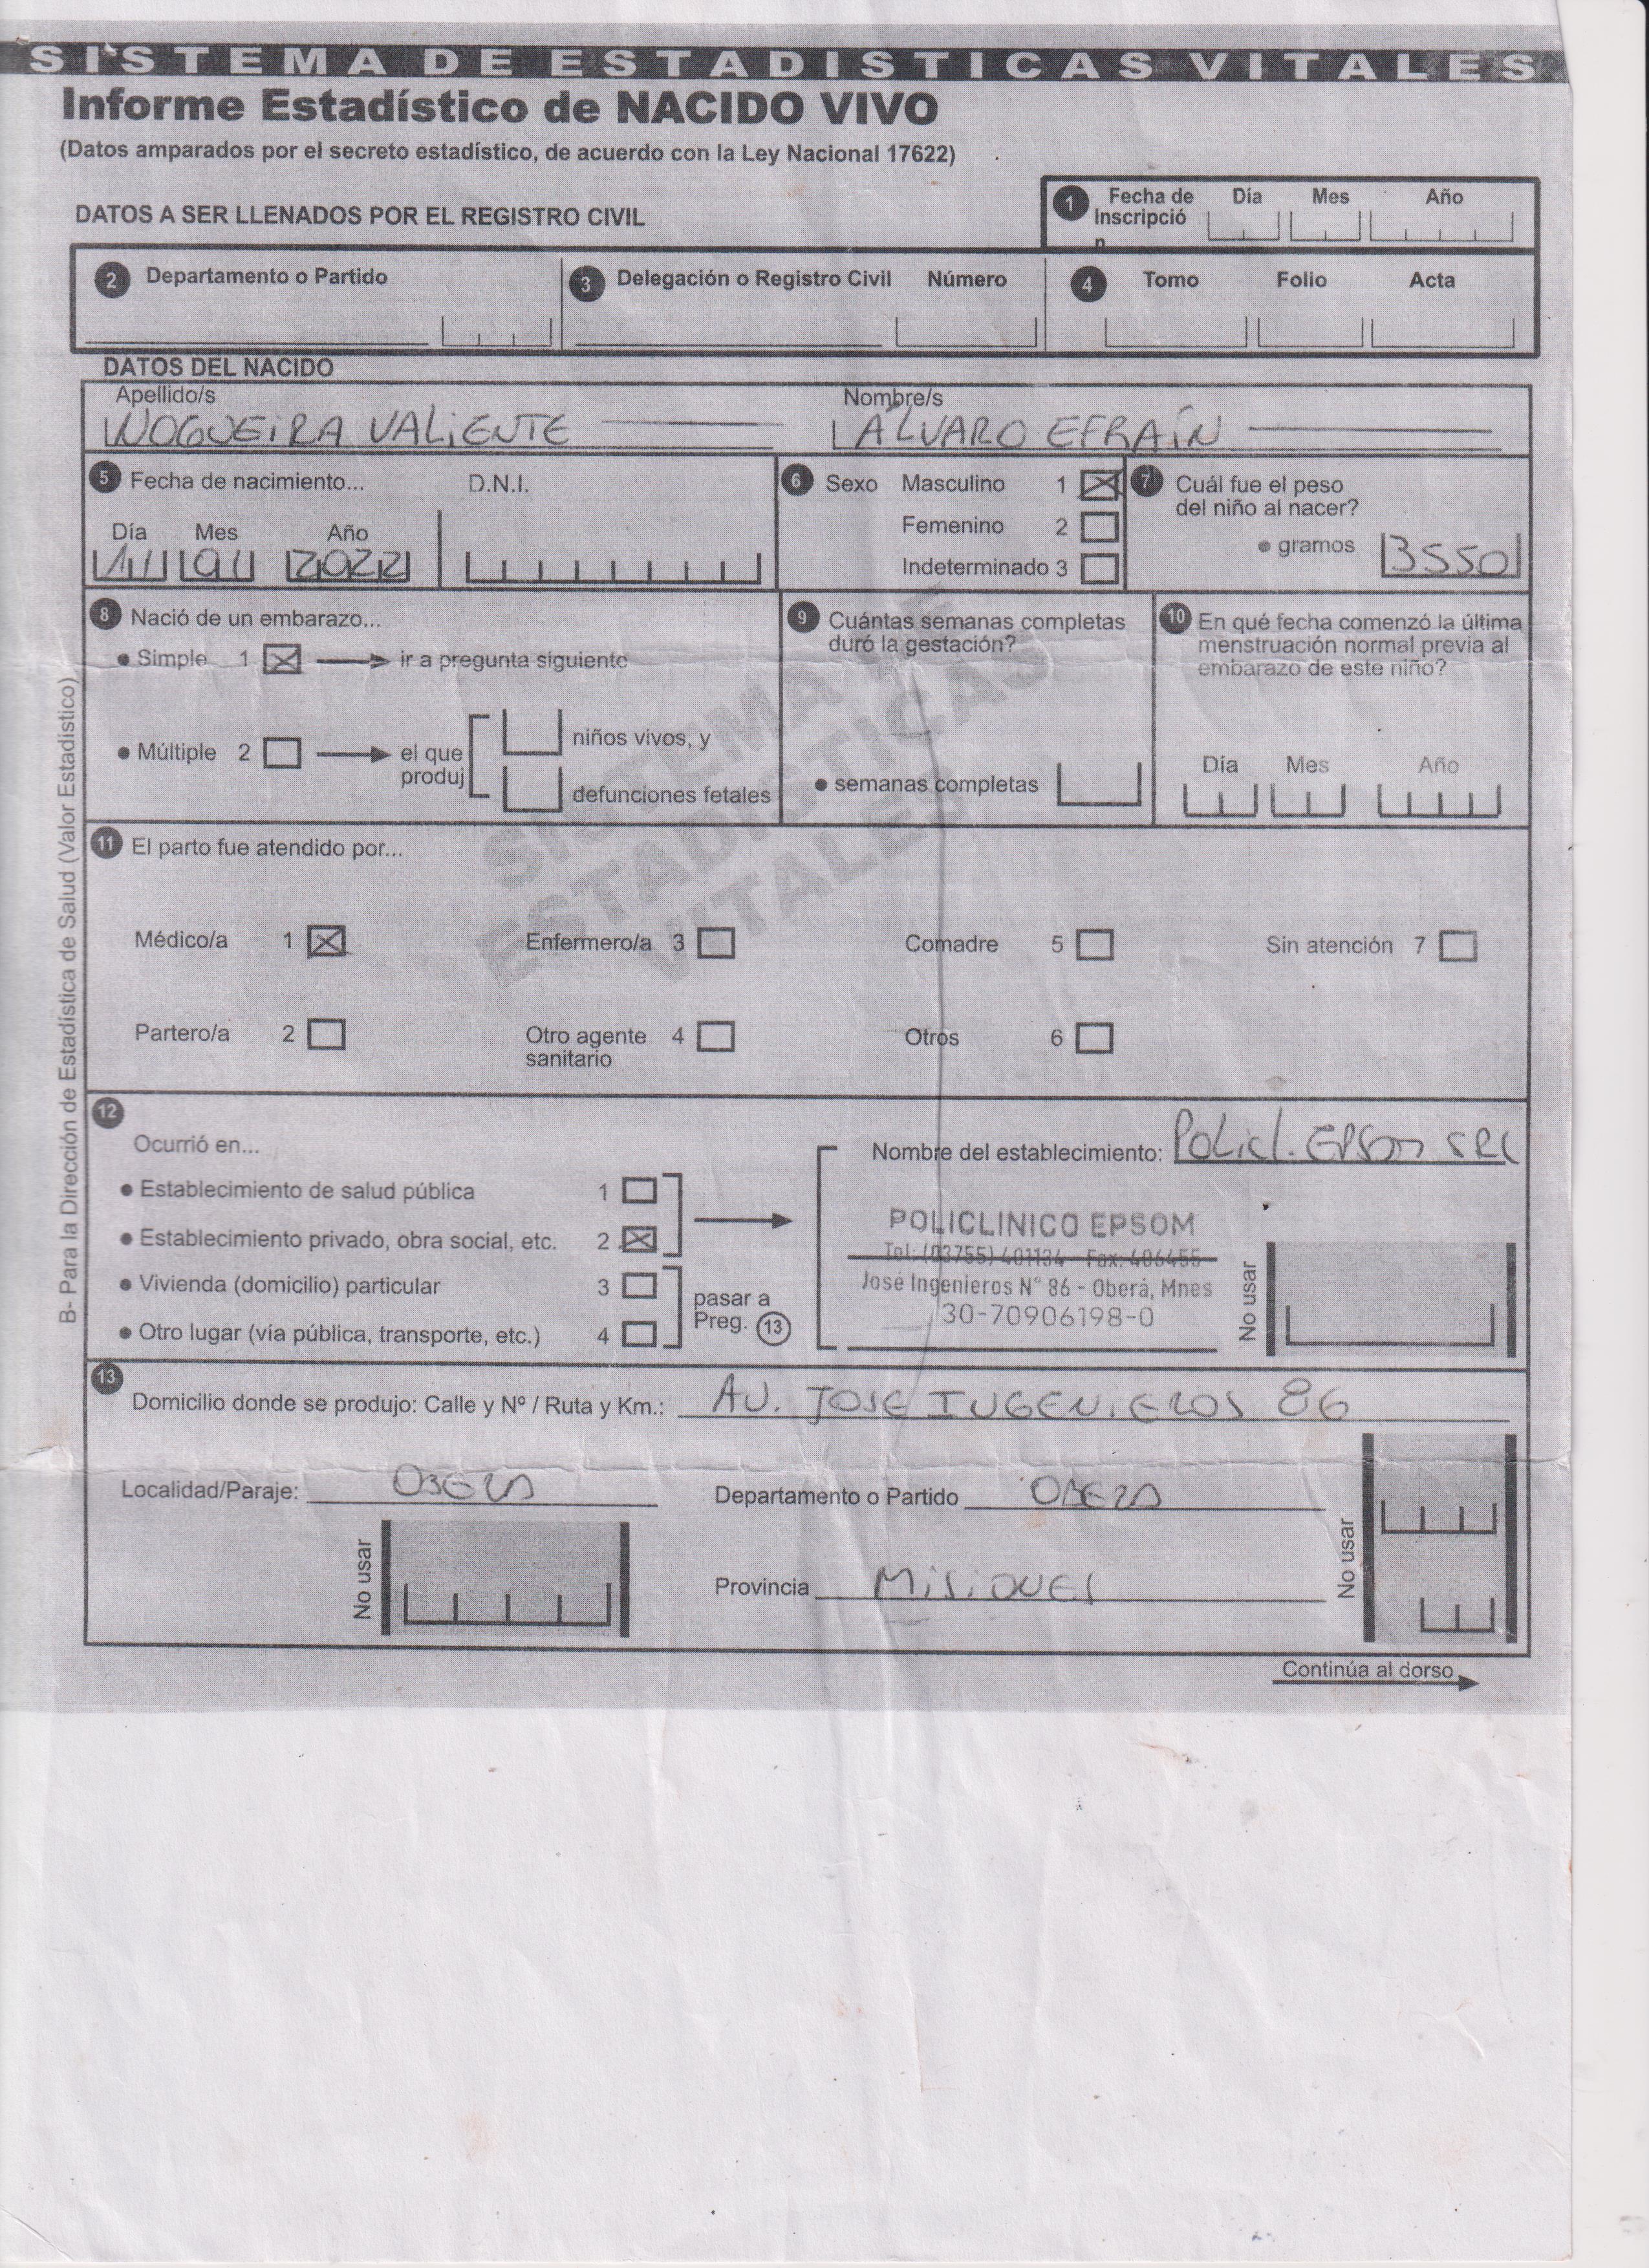 SISTEMA DE ESTADISTICAS VITALES
Informe Estadístico de NACIDO VIVO
(Datos amparados por el secreto estadístico, de acuerdo con la Ley Nacional 17622)
DATOS A SER LLENADOS POR EL REGISTRO CIVIL
1 Fecha de Inscripció n Día Mes Año
2 Departamento o Partido
3 Delegación o Registro Civil Número
4 Tomo Folio Acta
DATOS DEL NACIDO
Apellido/s Nombre/s
NOGUEIRA VALIENTE ÁLVARO EFRAÍN
5 Fecha de nacimiento... D.N.I.
Día Mes Año
2022
6 Sexo Masculino 1
Femenino 2
Indeterminado 3
7 Cuál fue el peso
del niño al nacer?
• gramos 3550
8 Nació de un embarazo...
• Simple 1 ir a pregunta siguiente
• Múltiple 2 el que
produj
niños vivos, y
defunciones fetales
9 Cuántas semanas completas
duró la gestación?
• semanas completas
10 En qué fecha comenzó la última
menstruación normal previa al
embarazo de este niño?
Día Mes Año
SISTEMA DE
ESTADISTICAS
VITALES
11 El parto fue atendido por...
Médico/a 1 Enfermero/a 3 Comadre 5 Sin atención 7
Partero/a 2 Otro agente 4 Otros 6
sanitario
12
Ocurrió en...
• Establecimiento de salud pública 1
• Establecimiento privado, obra social, etc. 2
• Vivienda (domicilio) particular 3
• Otro lugar (vía pública, transporte, etc.) 4
pasar a
Preg. 13
Nombre del establecimiento: Policl. EPSOM SRL
POLICLINICO EPSOM
Tel: (03755) 401134 - Fax: 406455
José Ingenieros N° 86 - Oberá, Mnes
30-70906198-0
No usar
13
Domicilio donde se produjo: Calle y Nº / Ruta y Km.: AV. JOSE INGENIEROS 86
Localidad/Paraje: OBERA Departamento o Partido OBERA
No usar
Provincia MISIONES
No usar
Continúa al dorso
B- Para la Dirección de Estadística de Salud (Valor Estadístico)